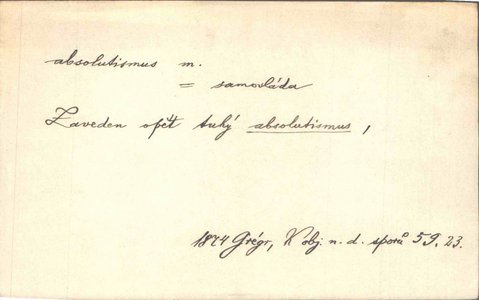 absolutismus m.
= samovláda
Zaveden opět tuhý absolutismus,
1874 Grégr, K obj. n. d. sporů 59. 23.